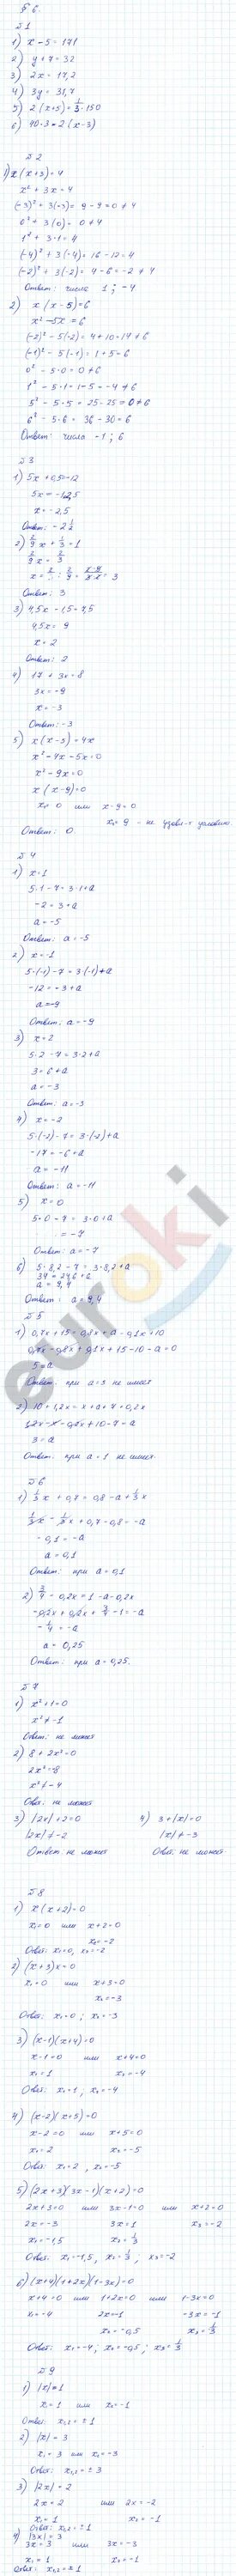 § 6.
№1
1) x - 5 = 171
2) y + 7 = 32
3) 2x = 17,2
4) 3y = 31,7
5) 2(x+5) = 1/3 · 150
6) 40·3 = 2(x-3)
№2
1) x(x+3) = 4
x² + 3x = 4
(-3)² + 3(-3) = 9 - 9 = 0 ≠ 4
0² + 3(0) = 0 ≠ 4
1² + 3·1 = 4
(-4)² + 3(-4) = 16 - 12 = 4
(-2)² + 3(-2) = 4 - 6 = -2 ≠ 4
Ответ: числа 1 ; -4
2) x(x-5) = 6
x² - 5x = 6
(-2)² - 5(-2) = 4 + 10 = 14 ≠ 6
(-1)² - 5(-1) = 1 + 5 = 6
0² - 5·0 = 0 ≠ 6
1² - 5·1 = 1 - 5 = -4 ≠ 6
5² - 5·5 = 25 - 25 = 0 ≠ 6
6² - 5·6 = 36 - 30 = 6
Ответ: числа -1 ; 6
№3
1) 5x + 0,5 = -12
5x = -12,5
x = -2,5
Ответ: -2 1/2
2) 2/9 x + 1/3 = 1
2/9 x = 2/3
Ответ: 3
3) 4,5x - 1,5 = 7,5
4,5x = 9
x = 2
Ответ: 2
4) 17 + 3x = 8
3x = -9
x = -3
Ответ: -3
5) x(x-5) = 4x
x² - 4x - 5x = 0
x² - 9x = 0
x(x-9) = 0
x₁ = 0 или x - 9 = 0
x₂ = 9 - не удовл-т условию.
Ответ: 0
№4
1) x = 1
5·1 - 7 = 3·1 + a
-2 = 3 + a
a = -5
Ответ: a = -5
2) x = -1
5·(-1) - 7 = 3·(-1) + a
-12 = -3 + a
a = -9
Ответ: a = -9
3) x = 2
5·2 - 7 = 3·2 + a
3 = 6 + a
a = -3
Ответ: a = -3
4) x = -2
5·(-2) - 7 = 3·(-2) + a
-17 = -6 + a
a = -11
Ответ: a = -11
5) x = 0
5·0 - 7 = 3·0 + a
= -7
Ответ: a = -7
6) 5·8,2 - 7 = 3·8,2 + a
34 = 24,6 + a
a = 9,4
Ответ: a = 9,4
№5
1) 0,7x + 15 = 0,8x + a - 0,1x + 10
0,7x - 0,8x + 0,1x + 15 - 10 - a = 0
5 = a
Ответ: при a = 5 не имеет
2) 10 + 1,2x - x + a + 7 + 0,2x
1,2x - x - 0,2x + 10 - 7 = a
3 = a
Ответ: при a = 1 не имеет.
№6
1) 1/3 x + 0,7 = 0,8 - a + 1/3 x
1/3 x - 1/3 x + 0,7 - 0,8 = -a
-0,1 = -a
a = 0,1
Ответ: при a = 0,1
2) 3/4 - 0,2x = 1 - a - 0,2x
-0,2x + 0,2x + 3/4 - 1 = -a
-1/4 = -a
a = 0,25
Ответ: при a = 0,25.
№7
1) x² + 1 = 0
x² ≠ -1
Ответ: не может
2) 8 + 2x² = 0
2x² = -8
x² ≠ -4
Ответ: не может
3) |2x| + 2 = 0
|2x| ≠ -2
Ответ: не может
4) 3 + |x| = 0
|x| ≠ -3
Ответ: не может.
№8
1) x(x+2) = 0
x₁ = 0 или x + 2 = 0
x₂ = -2
Ответ: x₁ = 0, x₂ = -2
2) (x+3)x = 0
x₁ = 0 или x + 3 = 0
x₂ = -3
Ответ: x₁ = 0 ; x₂ = -3
3) (x-1)(x+4) = 0
x - 1 = 0 или x + 4 = 0
x₁ = 1 x₂ = -4
Ответ: x₁ = 1, x₂ = -4
4) (x-2)(x+5) = 0
x - 2 = 0 или x + 5 = 0
x₁ = 2 x₂ = -5
Ответ: x₁ = 2, x₂ = -5
5) (2x+3)(3x-1)(x+2) = 0
2x + 3 = 0 или 3x - 1 = 0 или x + 2 = 0
2x = -3 3x = 1 x₃ = -2
x₁ = -1,5 x₂ = 1/3
Ответ: x₁ = -1,5, x₂ = 1/3, x₃ = -2
6) (x+4)(1+2x)(1-3x) = 0
x + 4 = 0 или 1 + 2x = 0 или 1 - 3x = 0
x₁ = -4 2x = -1 -3x = -1
x₂ = -0,5 x₃ = 1/3
Ответ: x₁ = -4 ; x₂ = -0,5 ; x₃ = 1/3
№9
1) |x| = 1
x₁ = 1 или x₂ = -1
Ответ: x₁,₂ = ±1
2) |x| = 3
x₁ = 3 или x₂ = -3
Ответ: x₁,₂ = ±3
3) |2x| = 2
2x = 2 или 2x = -2
x₁ = 1 x₂ = -1
Ответ: x₁,₂ = ±1
4) |3x| = 3
3x = 3 или 3x = -3
x₁ = 1 x₂ = -1
Ответ: x₁,₂ = ±1
euroki